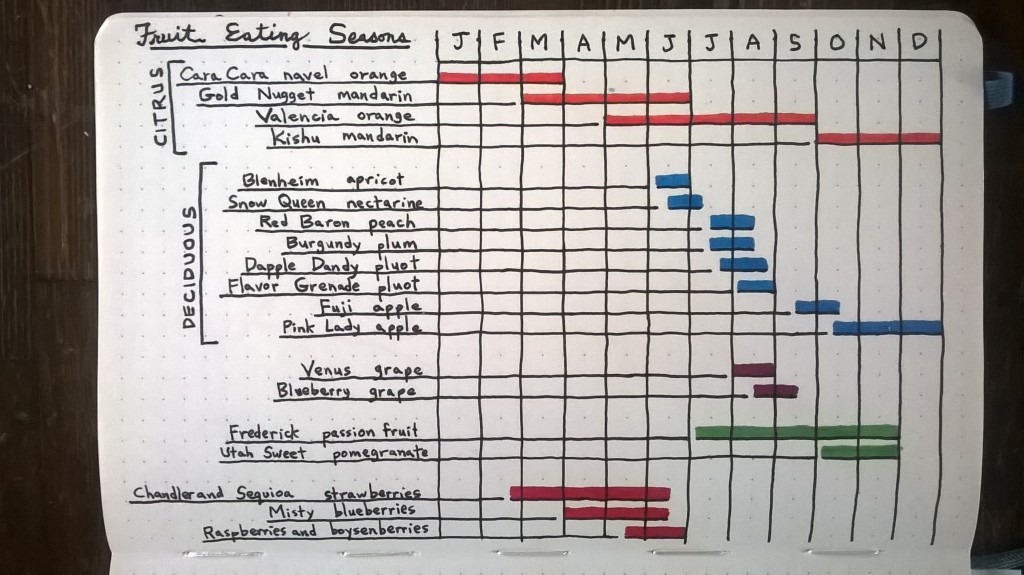 Fruit Eating Seasons J F M A M J J A S O N D
CITRUS
Cara Cara navel orange
Gold Nugget mandarin
Valencia orange
Kishu mandarin
DECIDUOUS
Blenheim apricot
Snow Queen nectarine
Red Baron peach
Burgundy plum
Dapple Dandy pluot
Flavor Grenade pluot
Fuji apple
Pink Lady apple
Venus grape
Blueberry grape
Frederick passion fruit
Utah Sweet pomegranate
Chandler and Sequioa strawberries
Misty blueberries
Raspberries and boysenberries